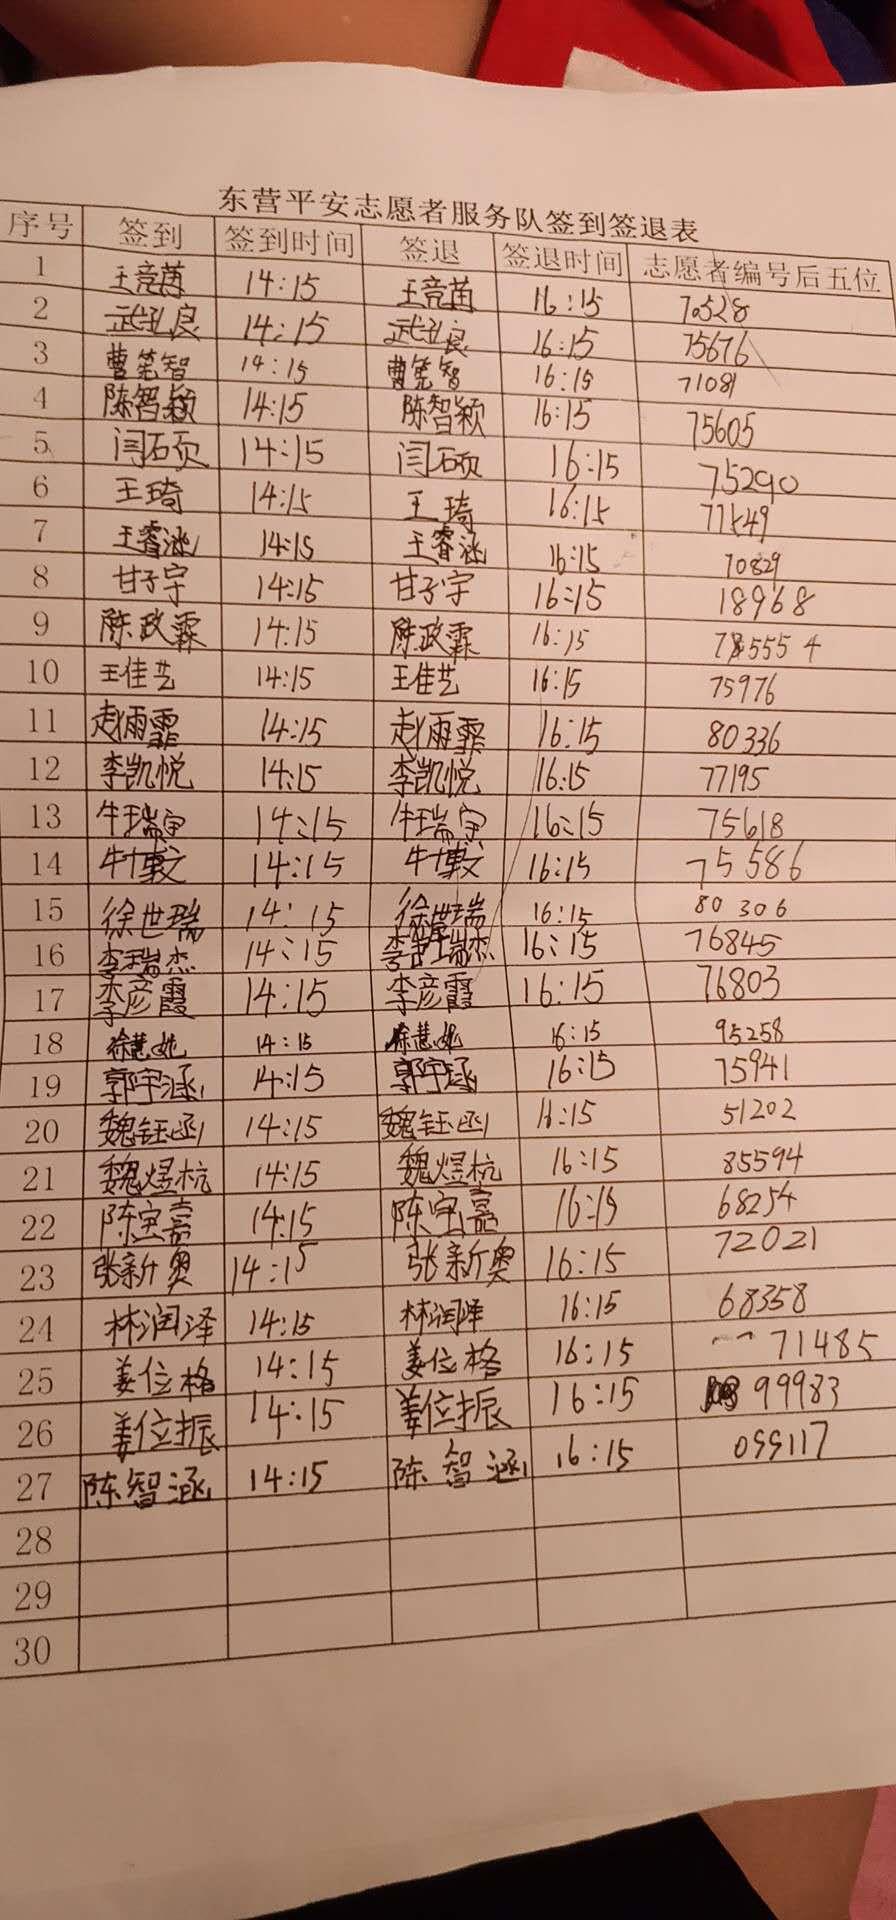 东营平安志愿者服务队签到签退表
序号 签到 签到时间 签退 签退时间 志愿者编号后五位
1 王竞茵 14:15 王竞茵 16:15 70528
2 武弘良 14:15 武弘良 16:15 75676
3 曹笼智 14:15 曹笼智 16:15 71081
4 陈智颖 14:15 陈智颖 16:15 75605
5 闫石页 14:15 闫硕 16:15 75290
6 王琦 14:15 王琦 16:15 71549
7 王睿涵 14:15 王睿涵 16:15 70829
8 甘子宇 14:15 甘子宇 16:15 18968
9 陈政霖 14:15 陈政霖 16:15 785554
10 王佳艺 14:15 王佳艺 16:15 75976
11 赵雨霏 14:15 赵雨霏 16:15 80336
12 李凯悦 14:15 李凯悦 16:15 77195
13 牛瑞宇 14:15 牛瑞宇 16:15 75618
14 牛博文 14:15 牛博文 16:15 75586
15 徐世瑞 14:15 徐世瑞 16:15 80306
16 李瑞杰 14:15 李瑞杰 16:15 76845
17 李彦霞 14:15 李彦霞 16:15 76803
18 徐慧妮 14:15 徐慧妮 16:15 95258
19 郭宇涵 14:15 郭宇涵 16:15 75941
20 魏钰函 14:15 魏钰函 16:15 51202
21 魏煜杭 14:15 魏煜杭 16:15 85594
22 陈宝嘉 14:15 陈宝嘉 16:15 68254
23 张新奥 14:15 张新奥 16:15 72021
24 林润泽 14:15 林润泽 16:15 68358
25 姜位格 14:15 姜位格 16:15 71485
26 姜位振 14:15 姜位振 16:15 99983
27 陈智涵 14:15 陈智涵 16:15 099117
28
29
30